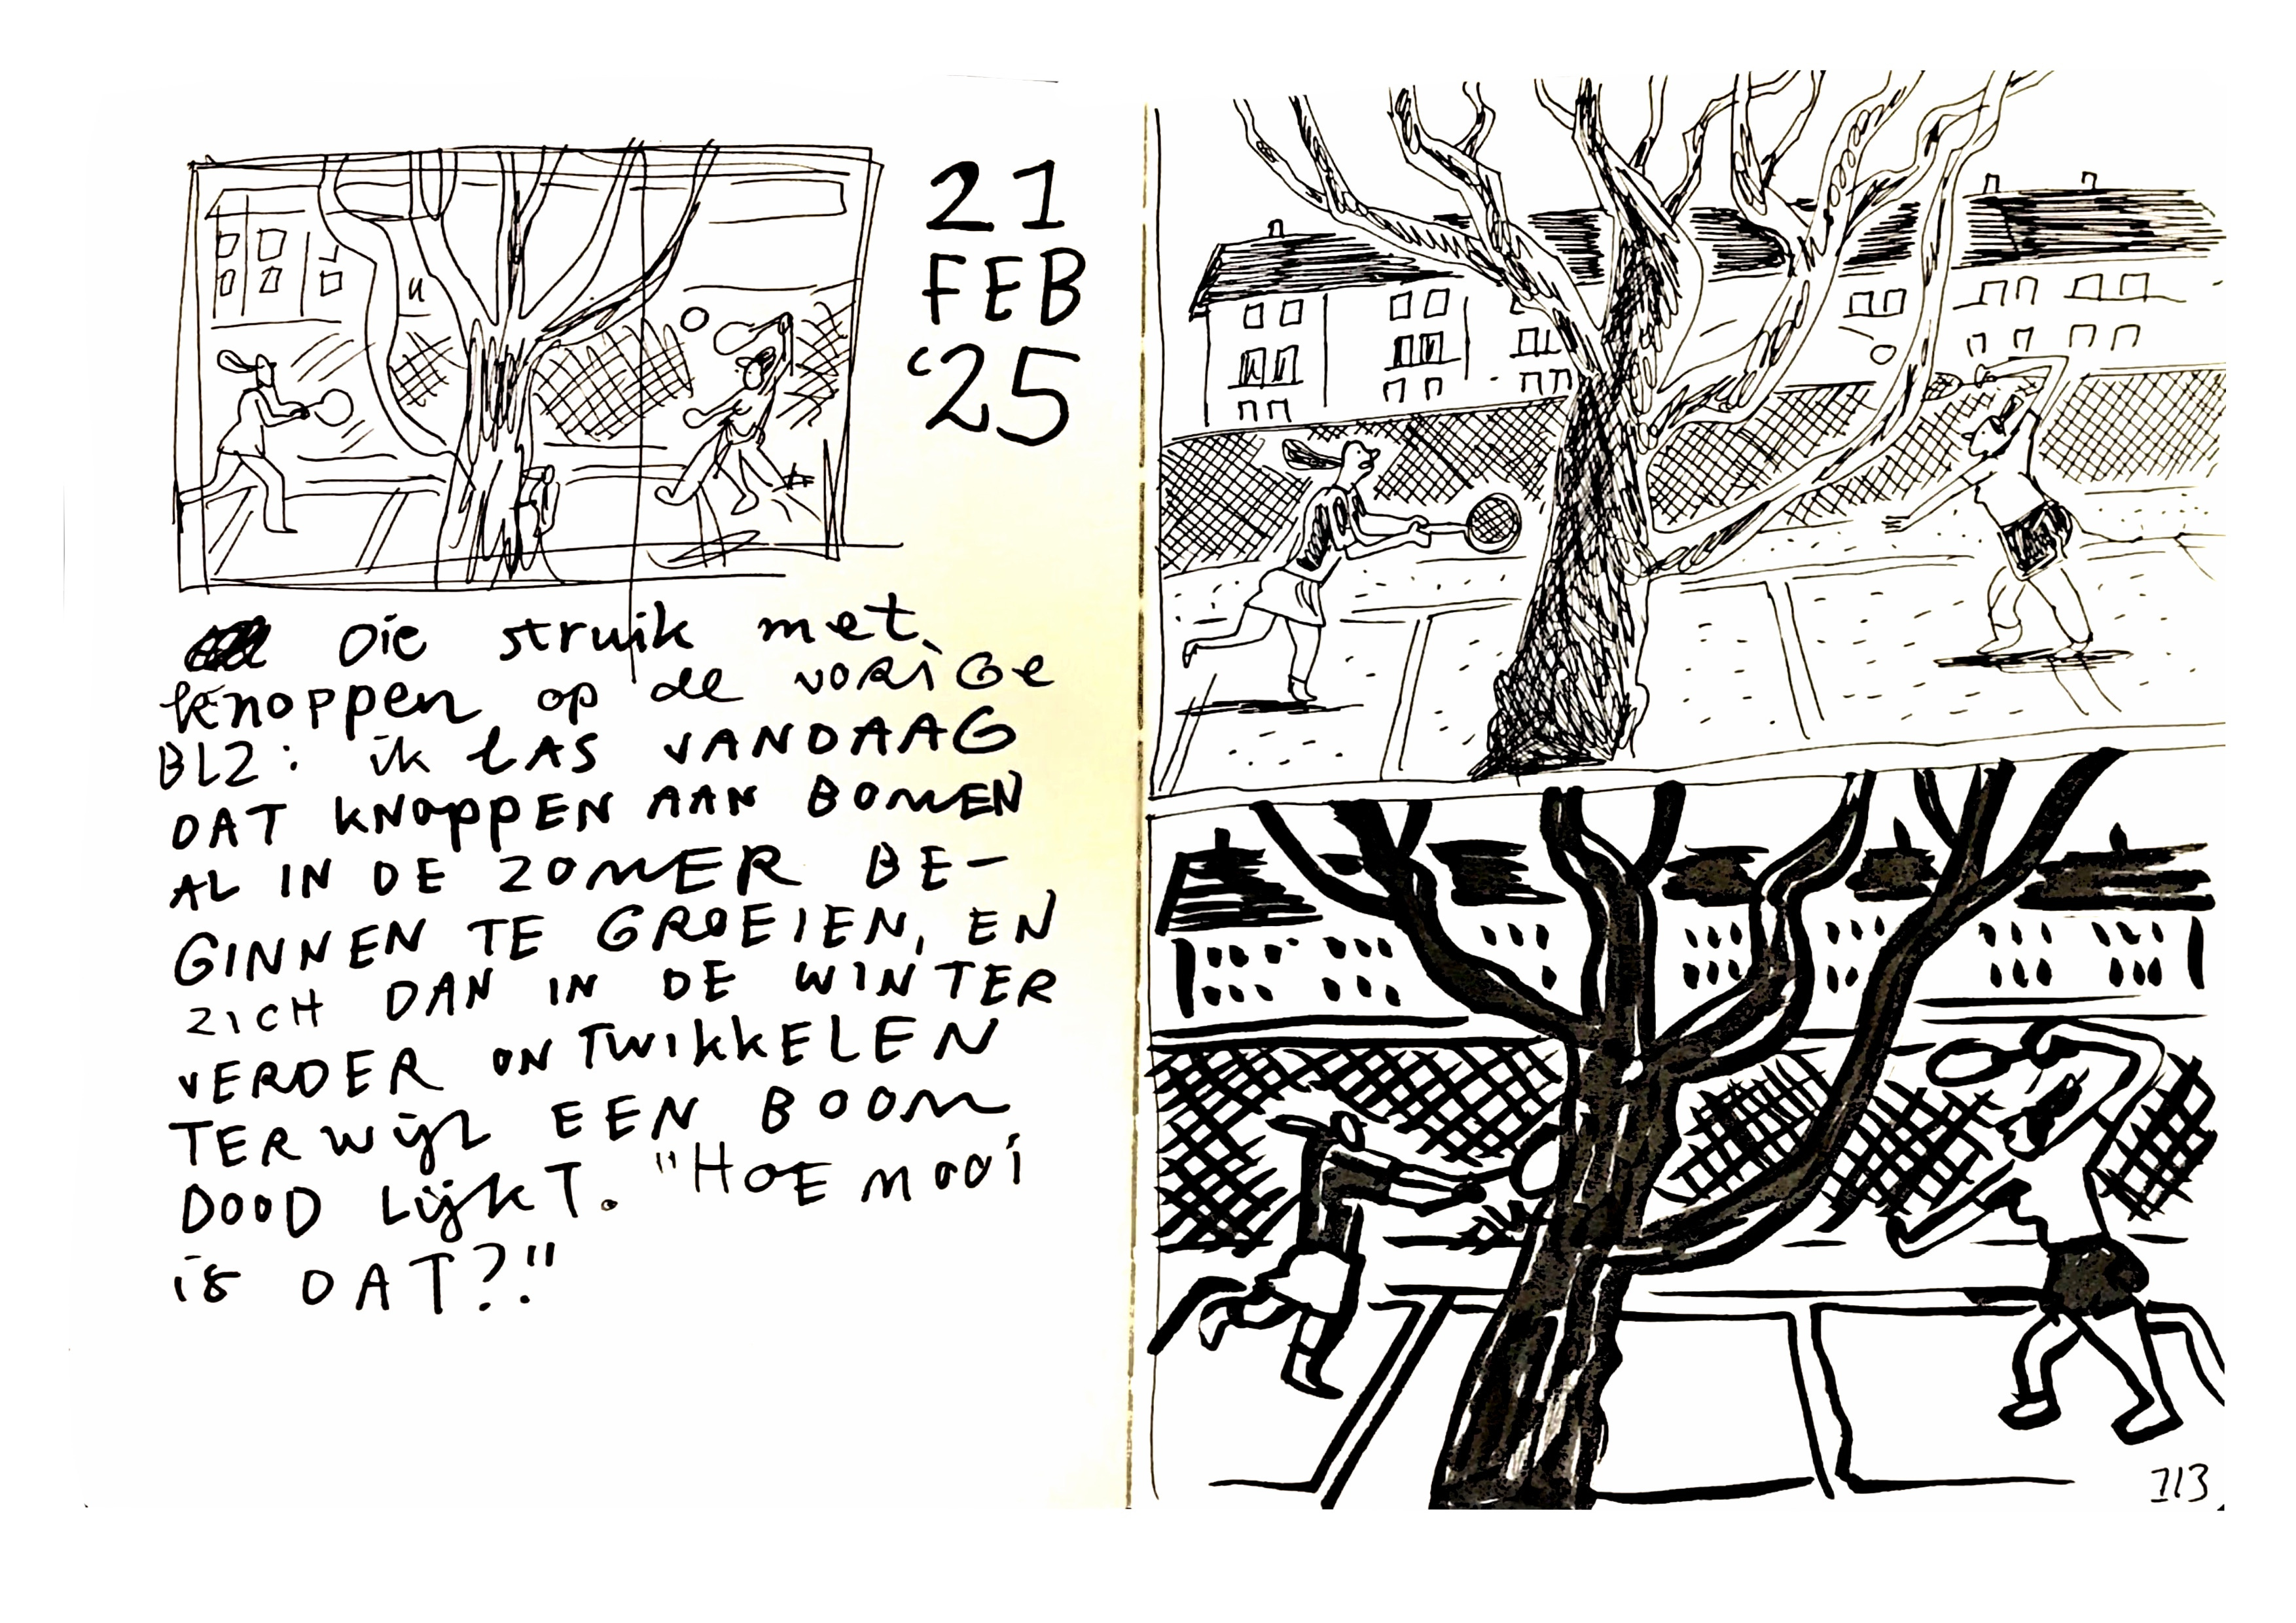 21
FEB
'25
Die struik met
knoppen op de vorige
BLZ: ik LAS VANDAAG
DAT KNOPPEN AAN BOMEN
AL IN DE ZOMER BE-
GINNEN TE GROEIEN, EN
ZICH DAN IN DE WINTER
VERDER ONTWIKKELEN
TERWIJL EEN BOOM
DOOD LIJKT. "HOE MOOI
is DAT?!"
113